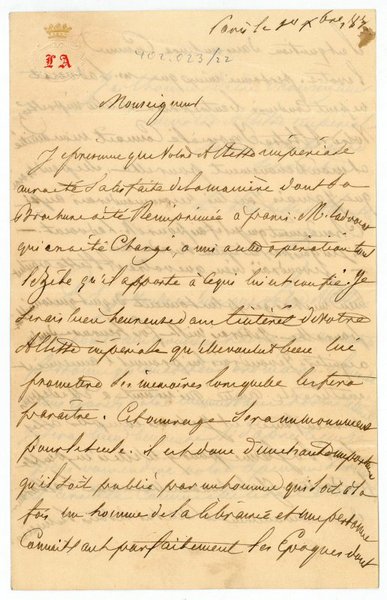 Paris le
LA
902.023/22
Monseigneur
Je présume que Votre Altesse impériale
aura été Satisfaite de la manière dont Sa
Brochure a été Réimprimée à paris. M. Ladvocat
qui en a été Chargé, a mis à cette opération tout
le Zèle qu'il apporte à ce qui lui est confié. Je
serais bien heureuse dans l'intérêt de Votre
Altesse impériale qu'elle voulut bien lui
promettre Ses mémoires lorsqu'elle les fera
paraître. Cet ouvrage Sera un monument
pour le siècle. il est donc d'une haute importance
qu'il Soit publié par un homme qui Soit à la
fois un homme de la librairie et une personne
Connaissant parfaitement les Epoques dont